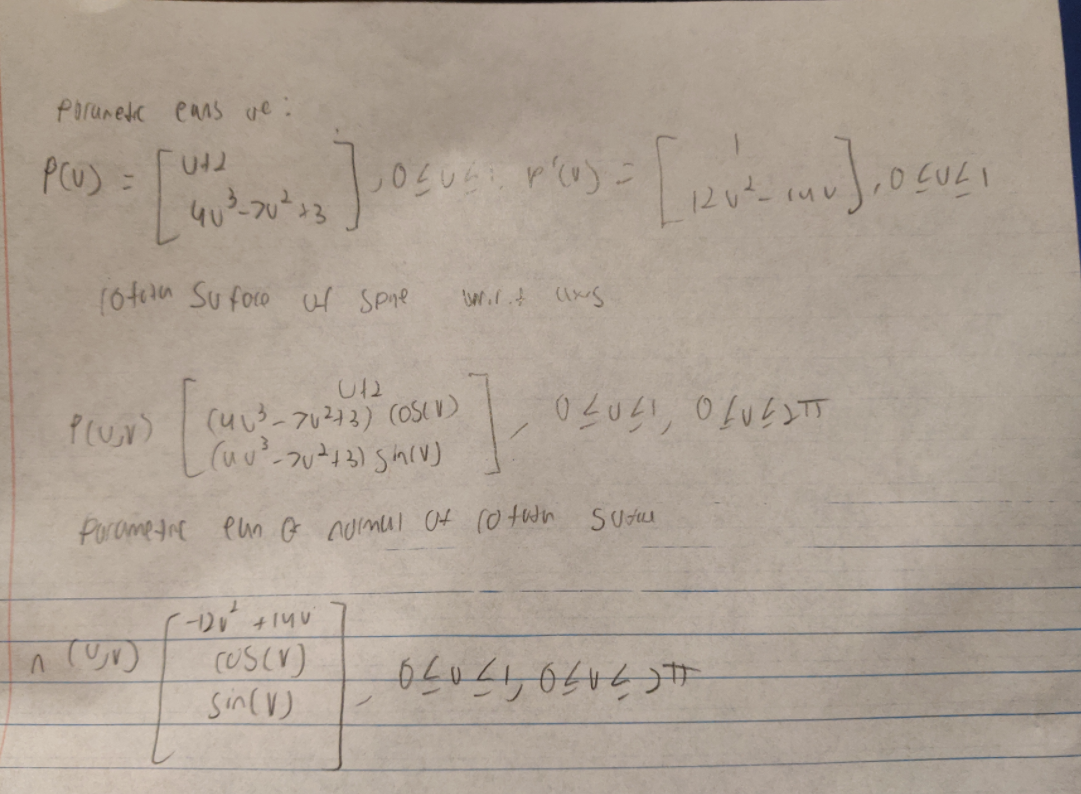 Parametric eqns are:
P(u) = [ u+2 ; 4u³-7u²+3 ], 0≤u≤1; p'(u) = [ 1 ; 12u²-14u ], 0≤u≤1
rotatn Surface of spine w.r.t axis
P(u,v) [ u+2 ; (4u³-7u²+3) cos(v) ; (4u³-7u²+3) sin(v) ], 0≤u≤1, 0≤v≤2π
Parametric eqn of normal of rotatn surface
n (u,v) [ -12u²+14u ; cos(v) ; sin(v) ], 0≤u≤1, 0≤v≤2π